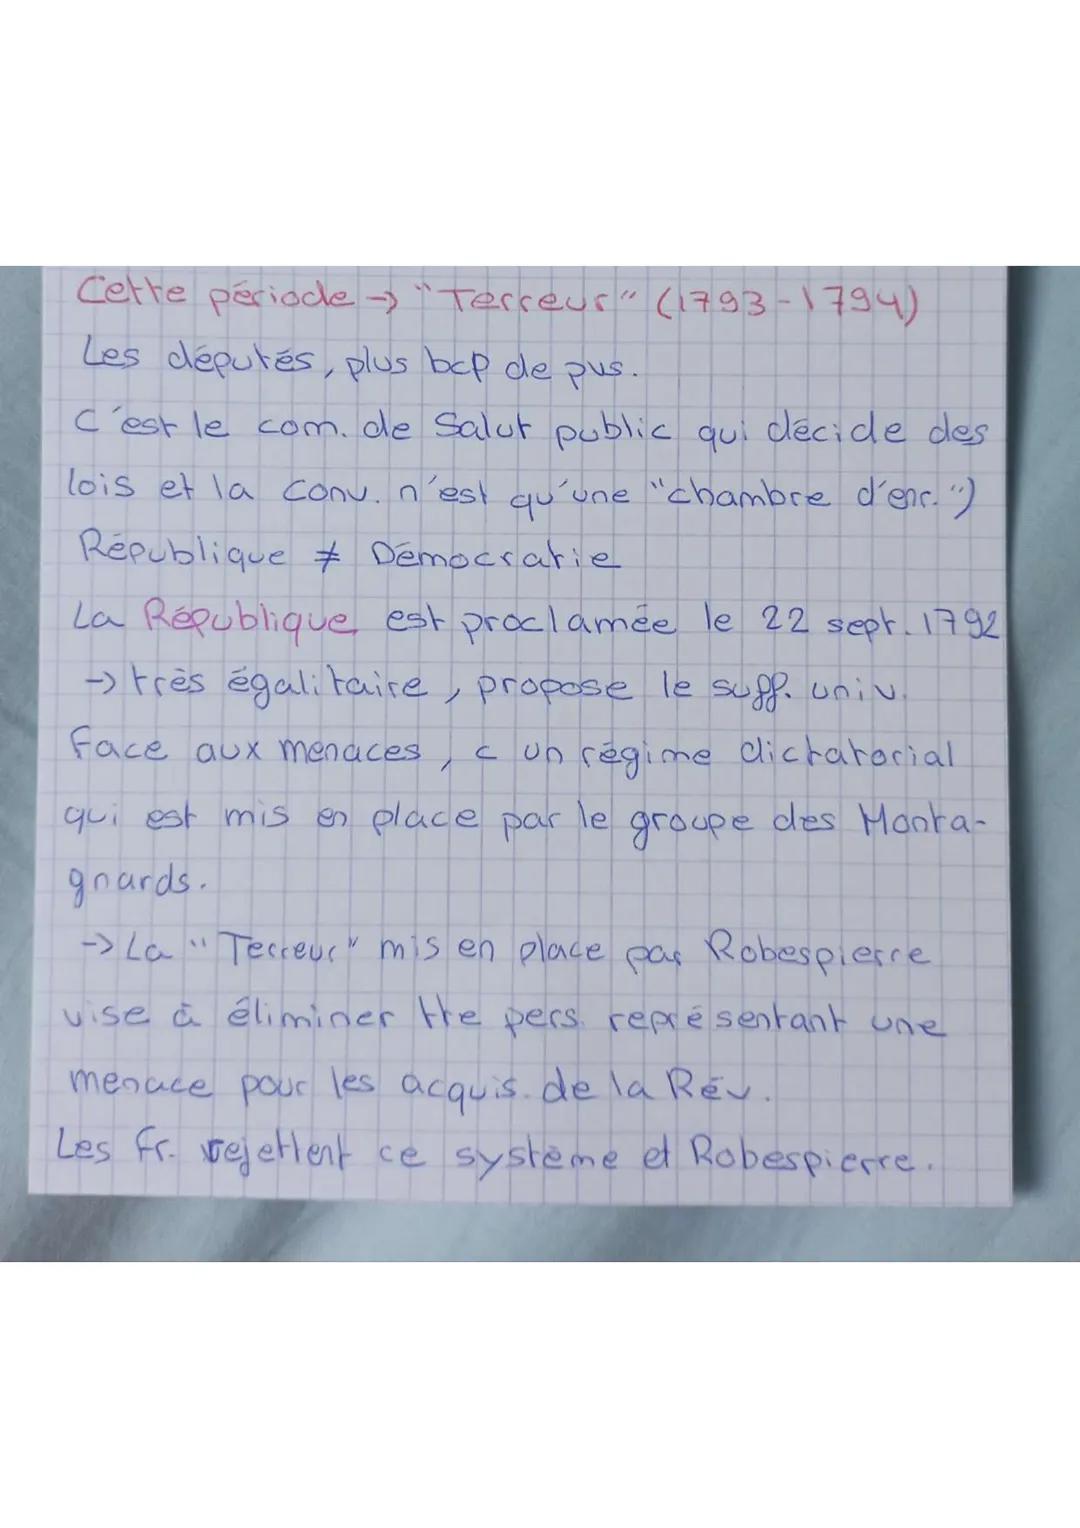 Cette période → "Terreur" (1793-1794)
Les députés, plus bcp de pvs.
C'est le com. de Salut public qui décide des
lois et la conv. n'est qu'une "chambre d'enr.")
République ≠ Démocratie
La République est proclamée le 22 sept. 1792
→ très égalitaire, propose le suff. univ.
Face aux menaces, c un régime dictatorial
qui est mis en place par le groupe des Monta-
gnards.
→ La "Terreur" mis en place par Robespierre
vise à éliminer tte pers. représentant une
menace pour les acquis. de la Rév.
Les fr. rejettent ce système et Robespierre.